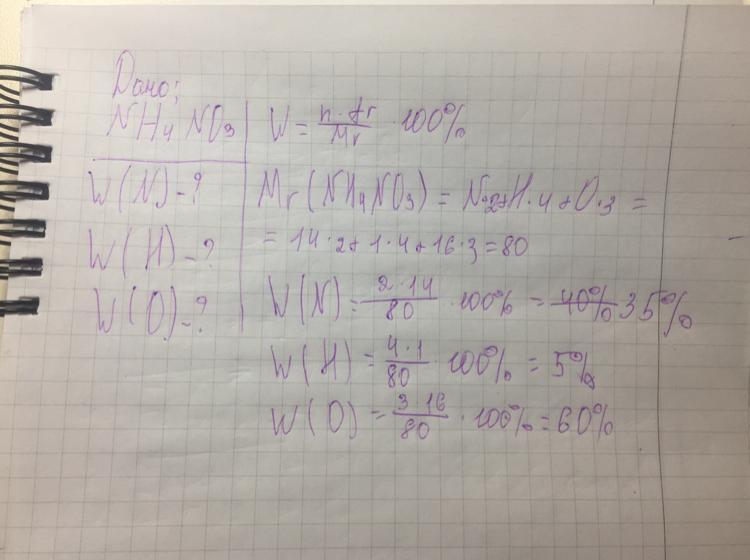 Дано:
NH4NO3
W = n·Ar/Mr · 100%
W(N) - ?
W(H) - ?
W(O) - ?
Mr(NH4NO3) = N·2+H·4+O·3 =
= 14·2+1·4+16·3=80
W(N) = 2·14/80 · 100% = 40% 35%
W(H) = 4·1/80 · 100% = 5%
W(O) = 3·16/80 · 100% = 60%